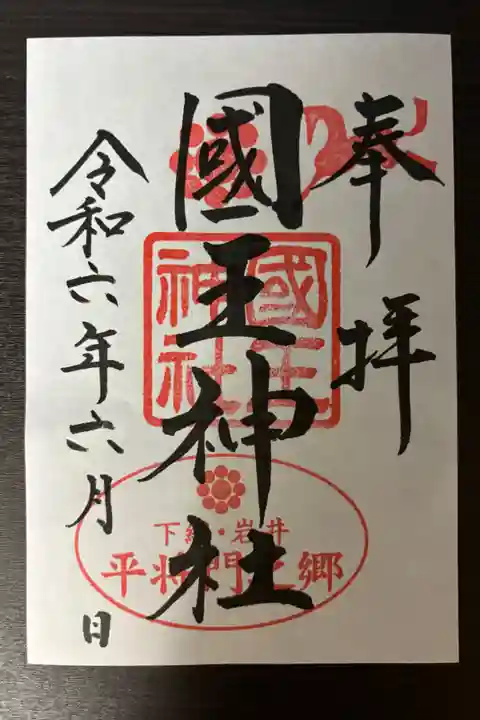 奉拝
國王神社
令和六年六月 日
國王神社
下総・岩井
平将門之郷